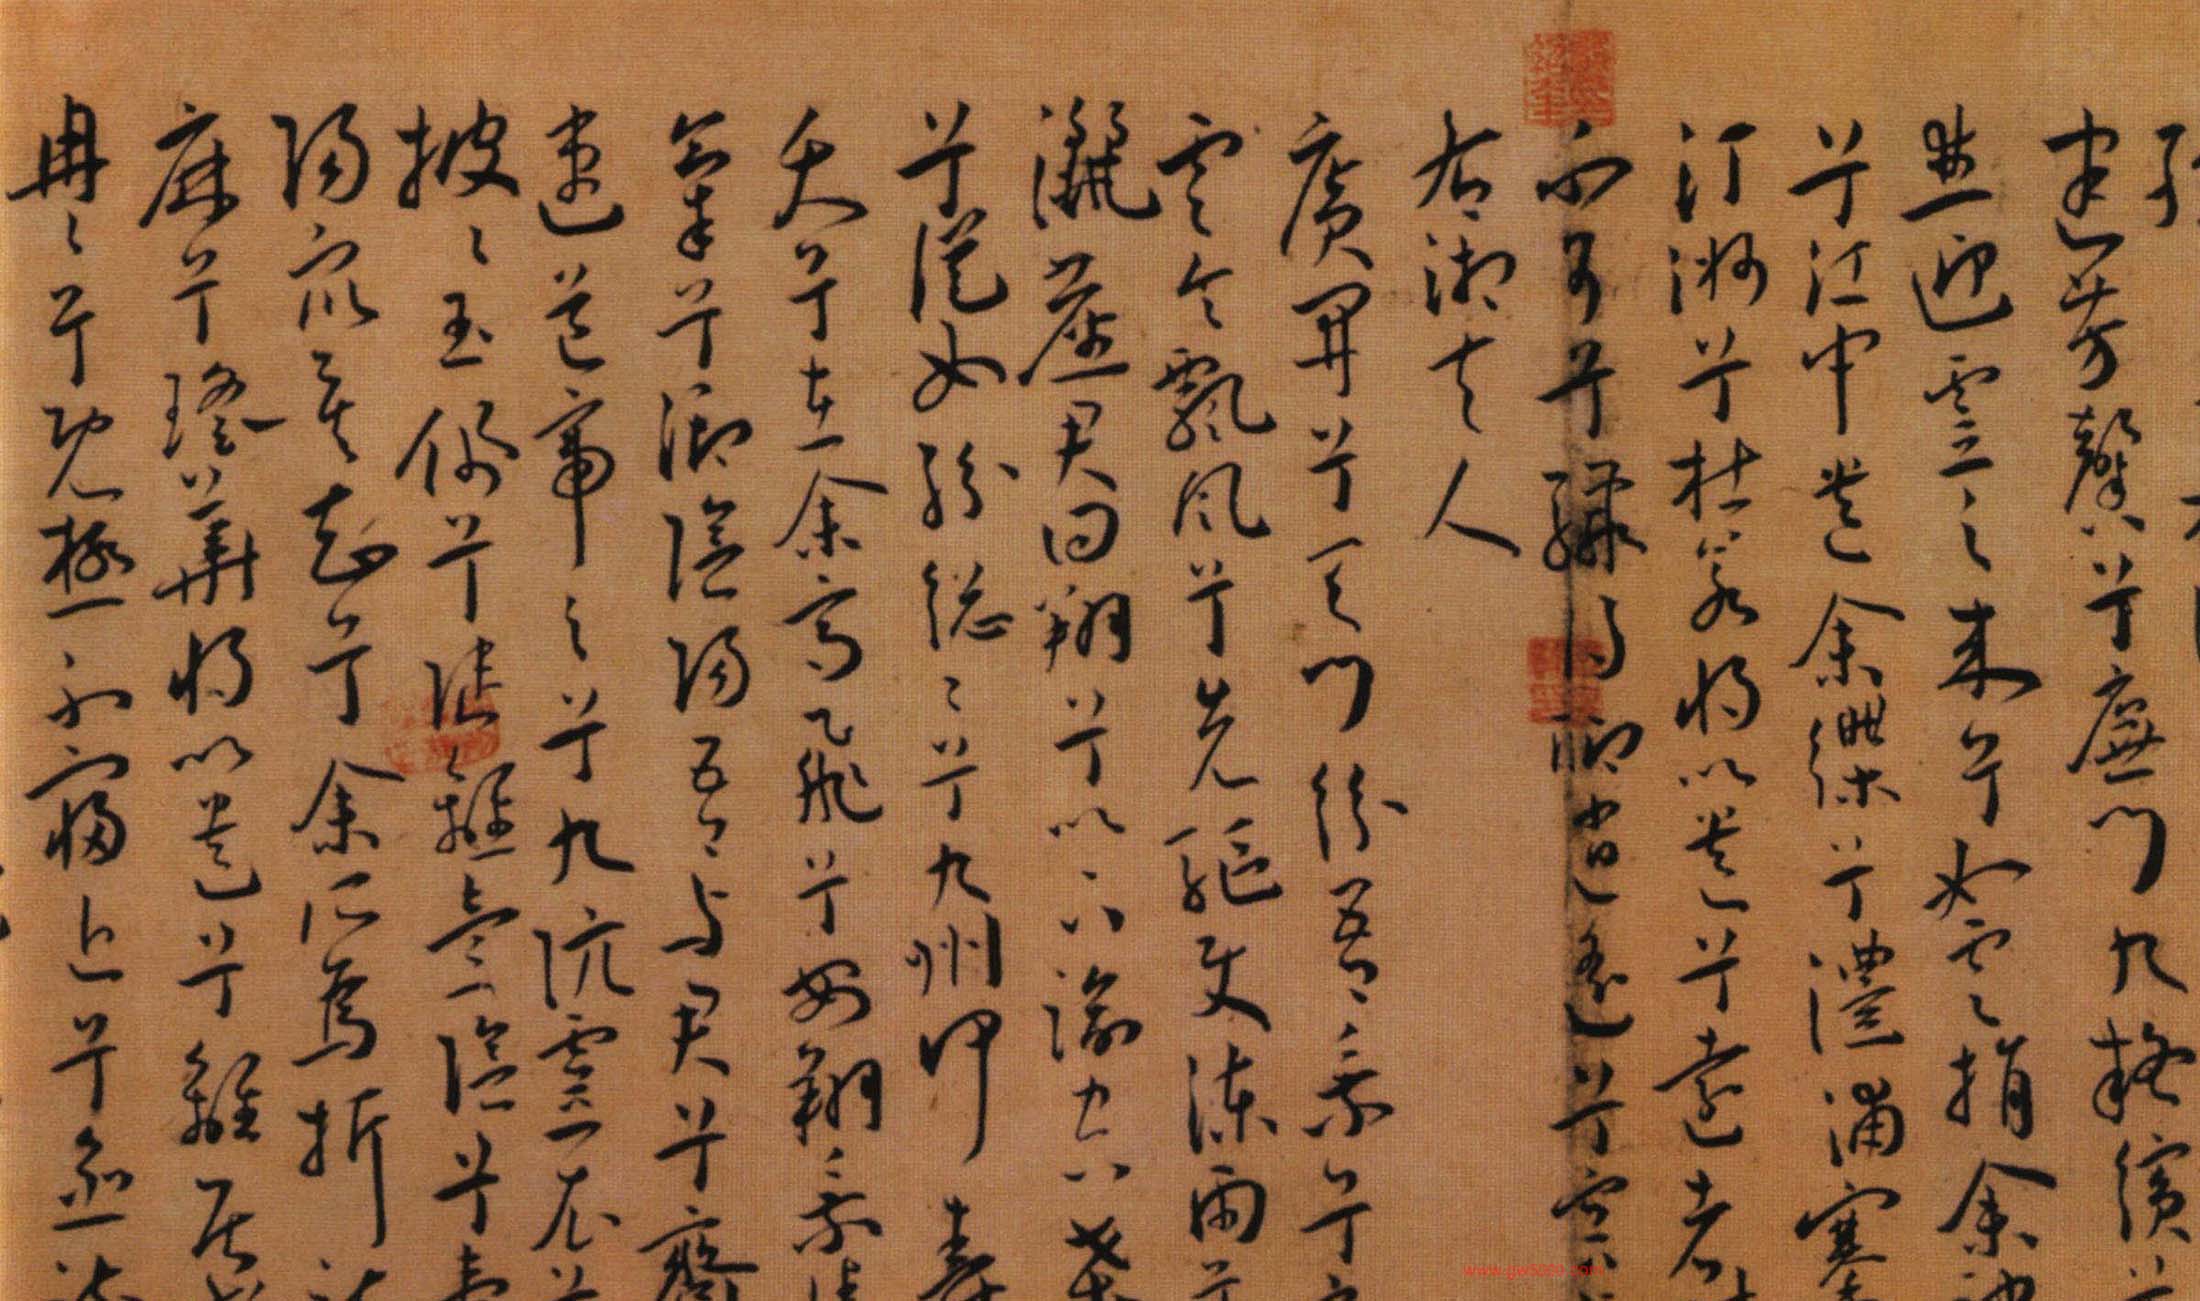 建芳馨兮廡門九嶷繽兮
並迎靈之來兮如雲捐余袂
兮江中遺余褋兮澧浦搴
汀洲兮杜若將以遺兮遠者
不可兮驟得聊逍遙兮容
右湘夫人
廣開兮天門紛吾乘兮玄
雲令飄風兮先驅使涷雨兮
灑塵君回翔兮以下踰空桑
兮從女紛總〻兮九州何壽
夭兮在余高飛兮安翔乘清
氣兮御陰陽吾與君兮齋
速道帝之兮九坑靈衣兮
披〻玉佩兮陸離壹陰兮壹
陽眾莫知兮余所為折疏
麻兮瑤華將以遺兮離居老
冉〻兮既極不寖近兮愈疏
www.gw5000.com